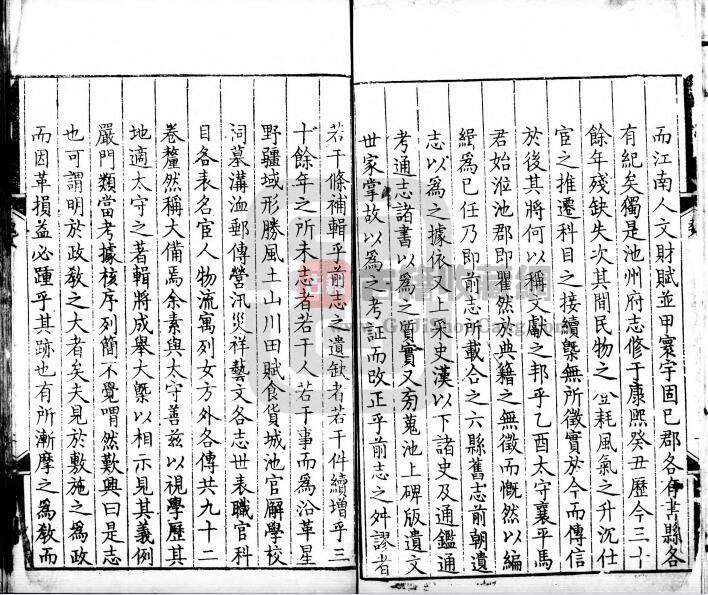 而江南人文財賦並甲寰宇固已郡各有書縣各
有紀矣獨是池州府志修于康熙癸丑歷今三十
餘年殘缺失次其間民物之登耗風氣之升沉仕
宦之推遷科目之接續槩無所徵實於今而傳信
於後其將何以稱文獻之邦乎乙酉太守襄平馬
君始涖池郡即瞿然以典籍之無徵而慨然以編
緝為已任乃即前志所載合之六縣舊志前朝遺
志以為之據依又上采史漢以下諸史及通鑑通
考通志諸書以為之質實又旁蒐池上碑版遺文
世家掌故以為之考証而改正乎前志之舛謬者
若干條補輯乎前志之遺缺者若干件續增乎三
十餘年之所未志者若干人若干事而為沿革星
野疆域形勝風土山川田賦食貨城池官廨學校
祠墓溝洫郵傳營汛災祥藝文各志世表職官科
目各表名宦人物流寓列女方外各傳共九十二
卷釐然稱大備焉余素與太守善茲以視學歷其
地適太守之著輯將成舉大槩以相示見其義例
嚴門類當考據核序列簡不覺喟然歎興曰是志
也可謂明於政教之大者矣夫見於敷施之為政
而因革損益必踵乎其跡也有所漸摩之為教而
古籍收藏网
www.GujiShouCang.com